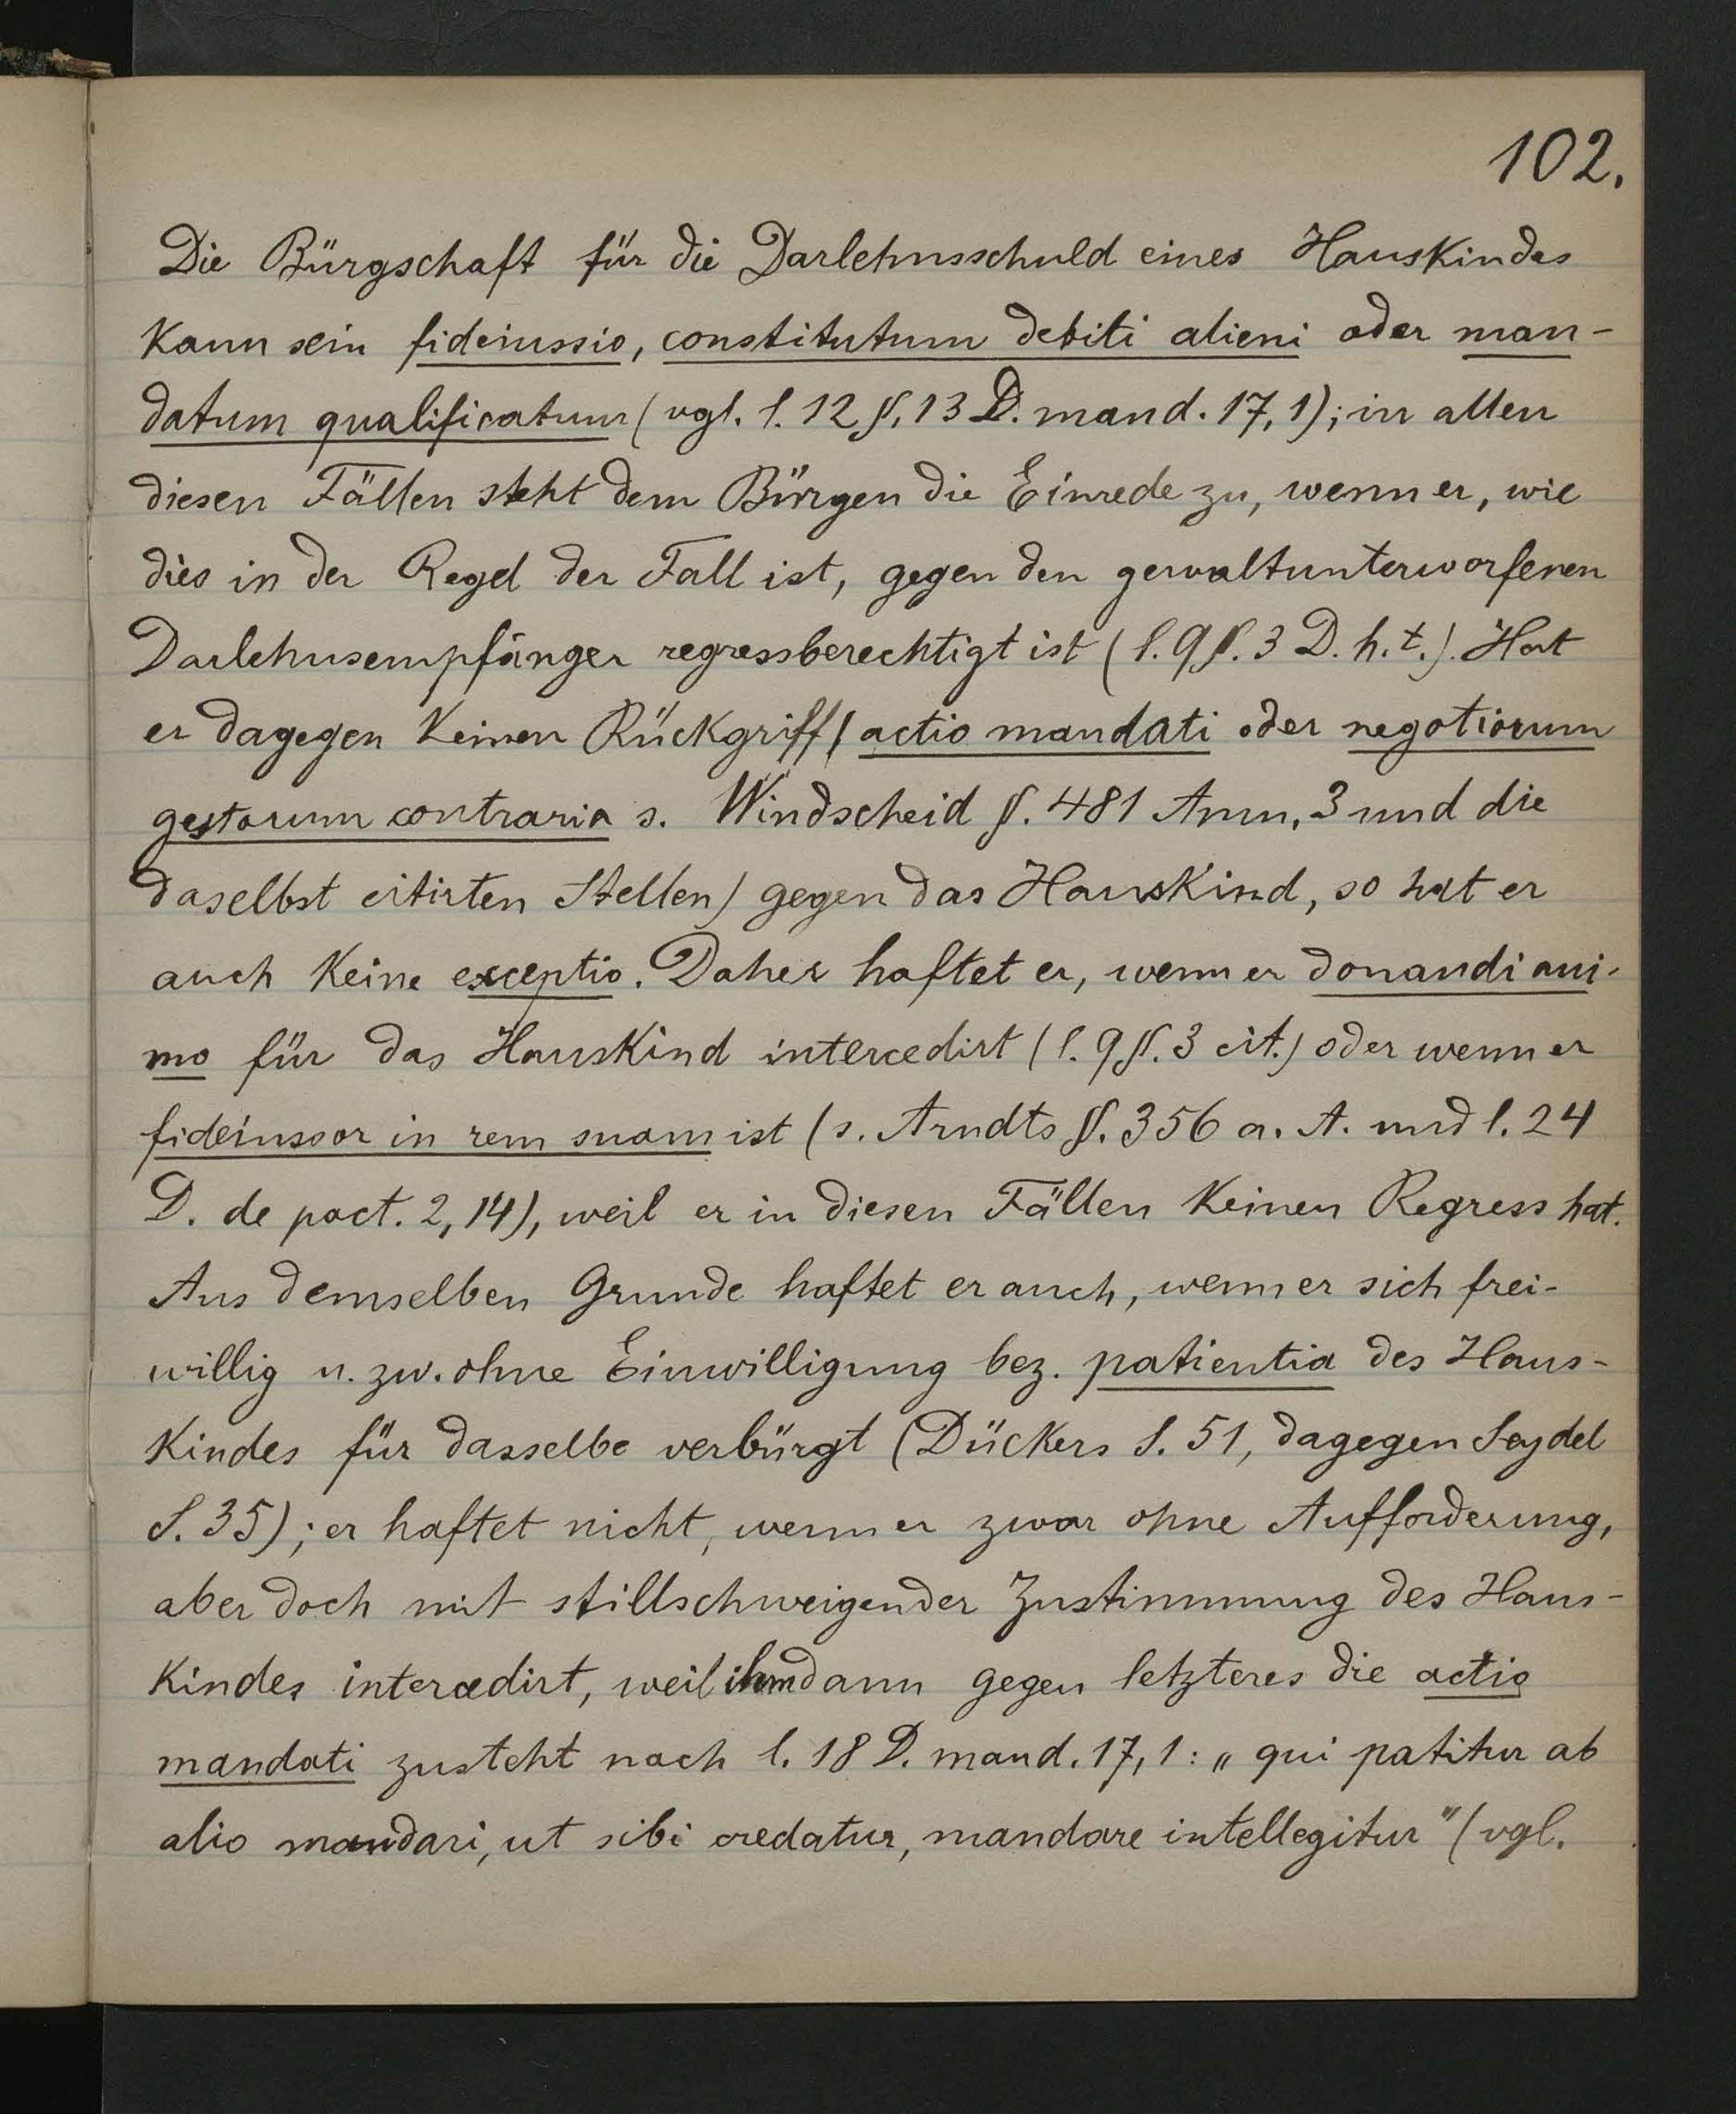 102.
Die Bürgschaft für die Darlehnsschuld eines Hauskindes
kann sein fideiussio, constitutum debiti alieni oder man-
datum qualificatum (vgl. l. 12 §. 13 D. mand. 17, 1); in allen
diesen Fällen steht dem Bürgen die Einrede zu, wenn er, wie
dies in der Regel der Fall ist, gegen den gewaltunterworfenen
Darlehnsempfänger regressberechtigt ist (l. 9 §. 3 D. h. t.). Hat
er dagegen keinen Rückgriff (actio mandati oder negotiorum
gestorum contraria s. Windscheid §. 481 Anm. 3 und die
daselbst citirten Stellen) gegen das Hauskind, so hat er
auch keine exceptio. Daher haftet er, wenn er donandi ani-
mo für das Hauskind intercedirt (l. 9 §. 3 cit.) oder wenn er
fideiussor in rem suam ist (s. Arndts §. 356 a. A. und l. 24
D. de pact. 2, 14), weil er in diesen Fällen keinen Regress hat.
Aus demselben Grunde haftet er auch, wenn er sich frei-
willig u. zw. ohne Einwilligung bez. patientia des Haus-
kindes für dasselbe verbürgt (Dückers S. 51, dagegen Seydel
S. 35); er haftet nicht, wenn er zwar ohne Aufforderung,
aber doch mit stillschweigender Zustimmung des Haus-
kindes intercedirt, weil ihm dann gegen letzteres die actio
mandati zusteht nach l. 18 D. mand. 17, 1: „qui patitur ab
alio mandari, ut sibi credatur, mandare intellegitur" (vgl.